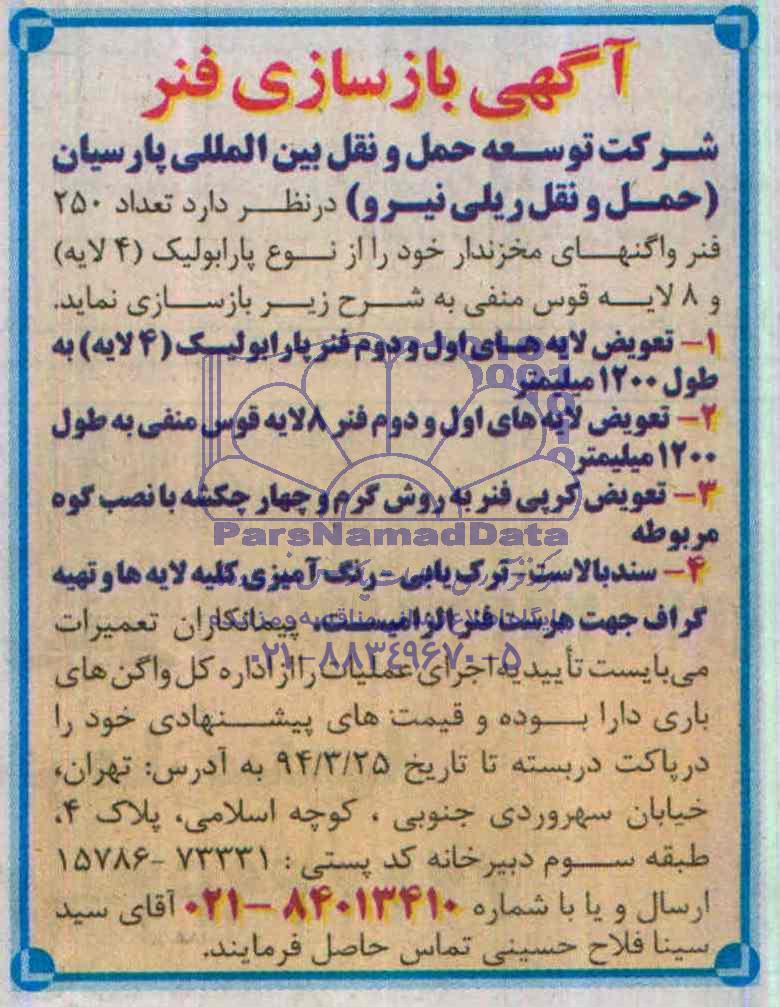 آگهی بازسازی فنر
شرکت توسعه حمل و نقل بین المللی پارسیان
(حمل و نقل ریلی نیرو) درنظر دارد تعداد ۲۵۰
فنر واگنهای مخزندار خود را از نوع پارابولیک (۴ لایه)
و ۸ لایه قوس منفی به شرح زیر بازسازی نماید.
۱- تعویض لایه های اول و دوم فنر پارابولیک (۴ لایه) به
طول ۱۲۰۰ میلیمتر
۲- تعویض لایه های اول و دوم فنر ۸ لایه قوس منفی به طول
۱۲۰۰ میلیمتر
۳- تعویض کرپی فنر به روش گرم و چهار چکشه با نصب گوه
مربوطه
ParsNamadData
۴- سندبلاست- ترک یابی - رنگ آمیزی کلیه لایه ها و تهیه
گراف جهت هر ست فنر الزامیست. پیمانکاران تعمیرات
۰۲۱-۸۸۳۴۹۶۷۰-۵
می بایست تأییدیه اجرای عملیات را از اداره کل واگن های
باری دارا بوده و قیمت های پیشنهادی خود را
درپاکت دربسته تا تاریخ ۹۴/۳/۲۵ به آدرس: تهران،
خیابان سهروردی جنوبی ، کوچه اسلامی، پلاک ۴،
طبقه سوم دبیرخانه کد پستی : ۷۳۳۳۱ -۱۵۷۸۶
ارسال و یا با شماره ۸۴۰۱۳۴۱۰ -۰۲۱ آقای سید
سینا فلاح حسینی تماس حاصل فرمایند.